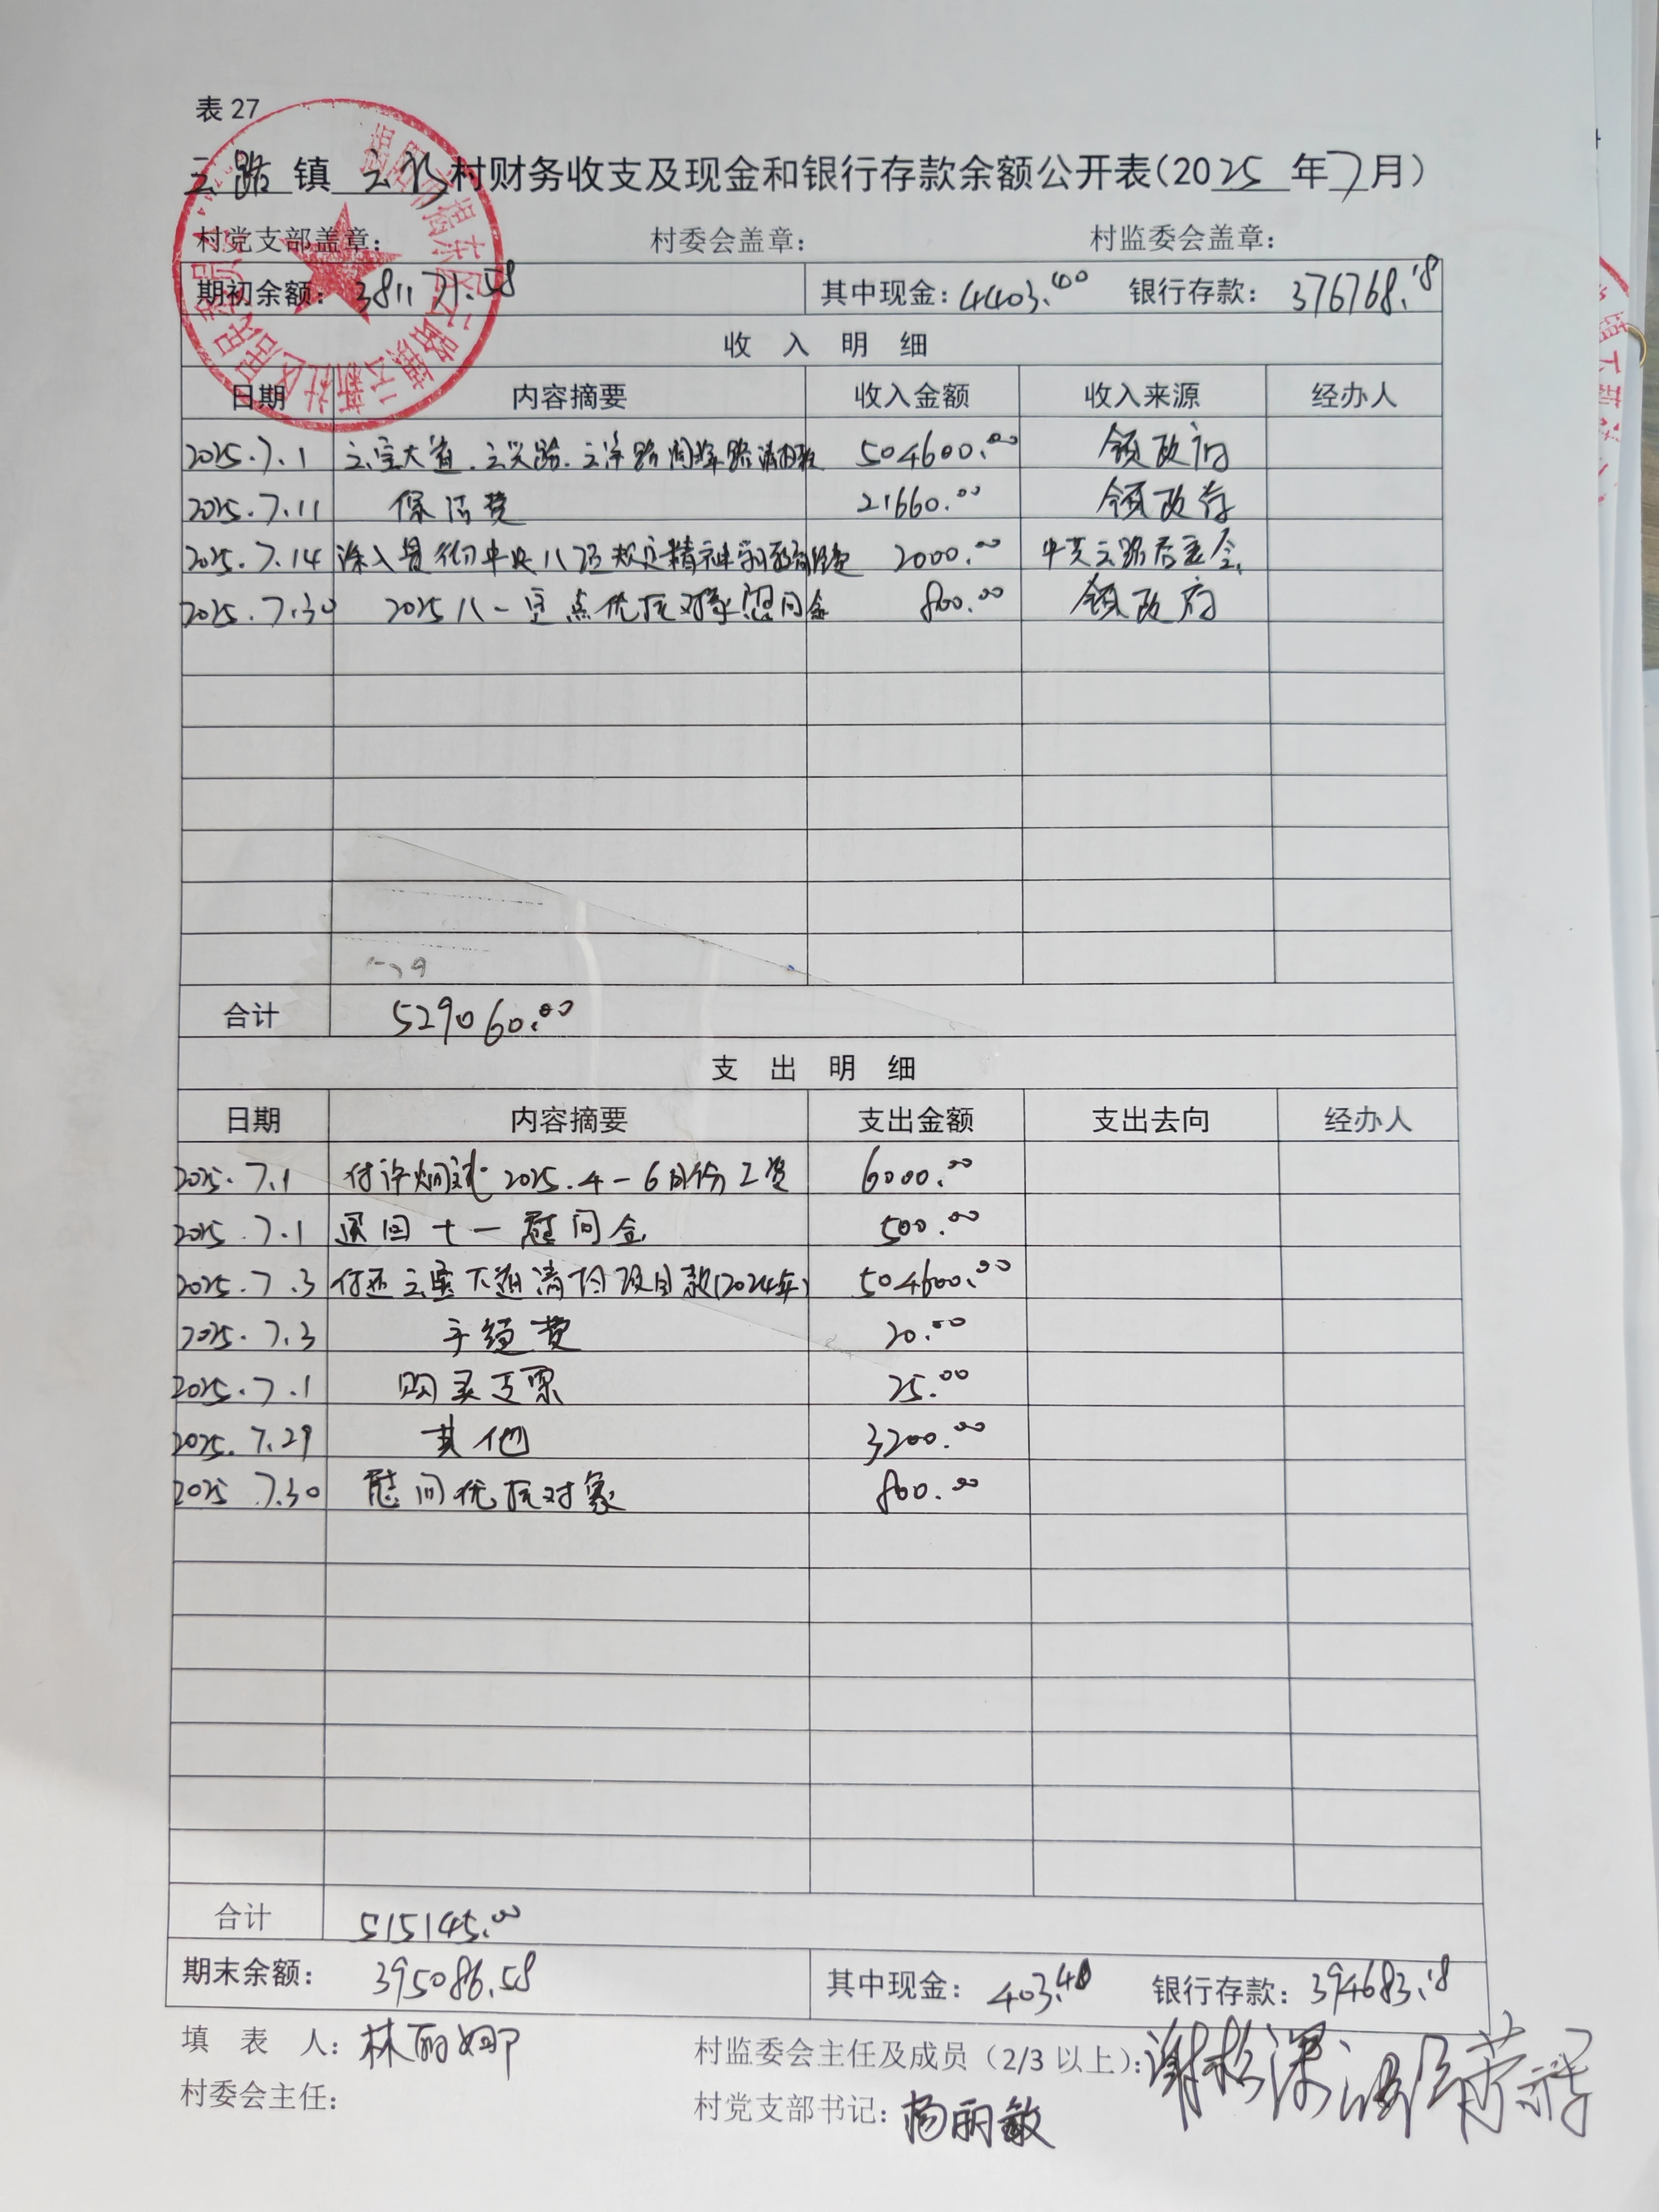 表 27
云路 镇 云新 村财务收支及现金和银行存款余额公开表(2025 年 7 月)
村党支部盖章: 村委会盖章: 村监委会盖章:
揭阳市揭东区云路镇云新社区居民委员会
期初余额: 381171.58 其中现金: 4403.40 银行存款: 376768.18
收 入 明 细
日期 内容摘要 收入金额 收入来源 经办人
2025.7.1 504600.00 镇政府
2025.7.11 保洁费 21660.00 镇政府
2025.7.14 深入贯彻中央八项规定精神学习教育经费 2000.00 中共云路居委会
2025.7.30 2025八一重点优抚对象慰问金 800.00 镇政府
合计 529060.00
支 出 明 细
日期 内容摘要 支出金额 支出去向 经办人
2025.7.1 付许炯斌2025.4-6月份工资 6000.00
2025.7.1 退回十一慰问金 500.00
2025.7.3 付还云 清 项目款(2024年) 504600.00
2025.7.3 手续费 20.00
2025.7.1 购买支票 25.00
2025.7.29 其他 3200.00
2025 7.30 慰问优抚对象 800.00
合计 515145.00
期末余额: 395086.58 其中现金: 403.40 银行存款: 394683.18
填 表 人: 林丽娜 村监委会主任及成员(2/3 以上):
村委会主任: 村党支部书记: 杨丽敏